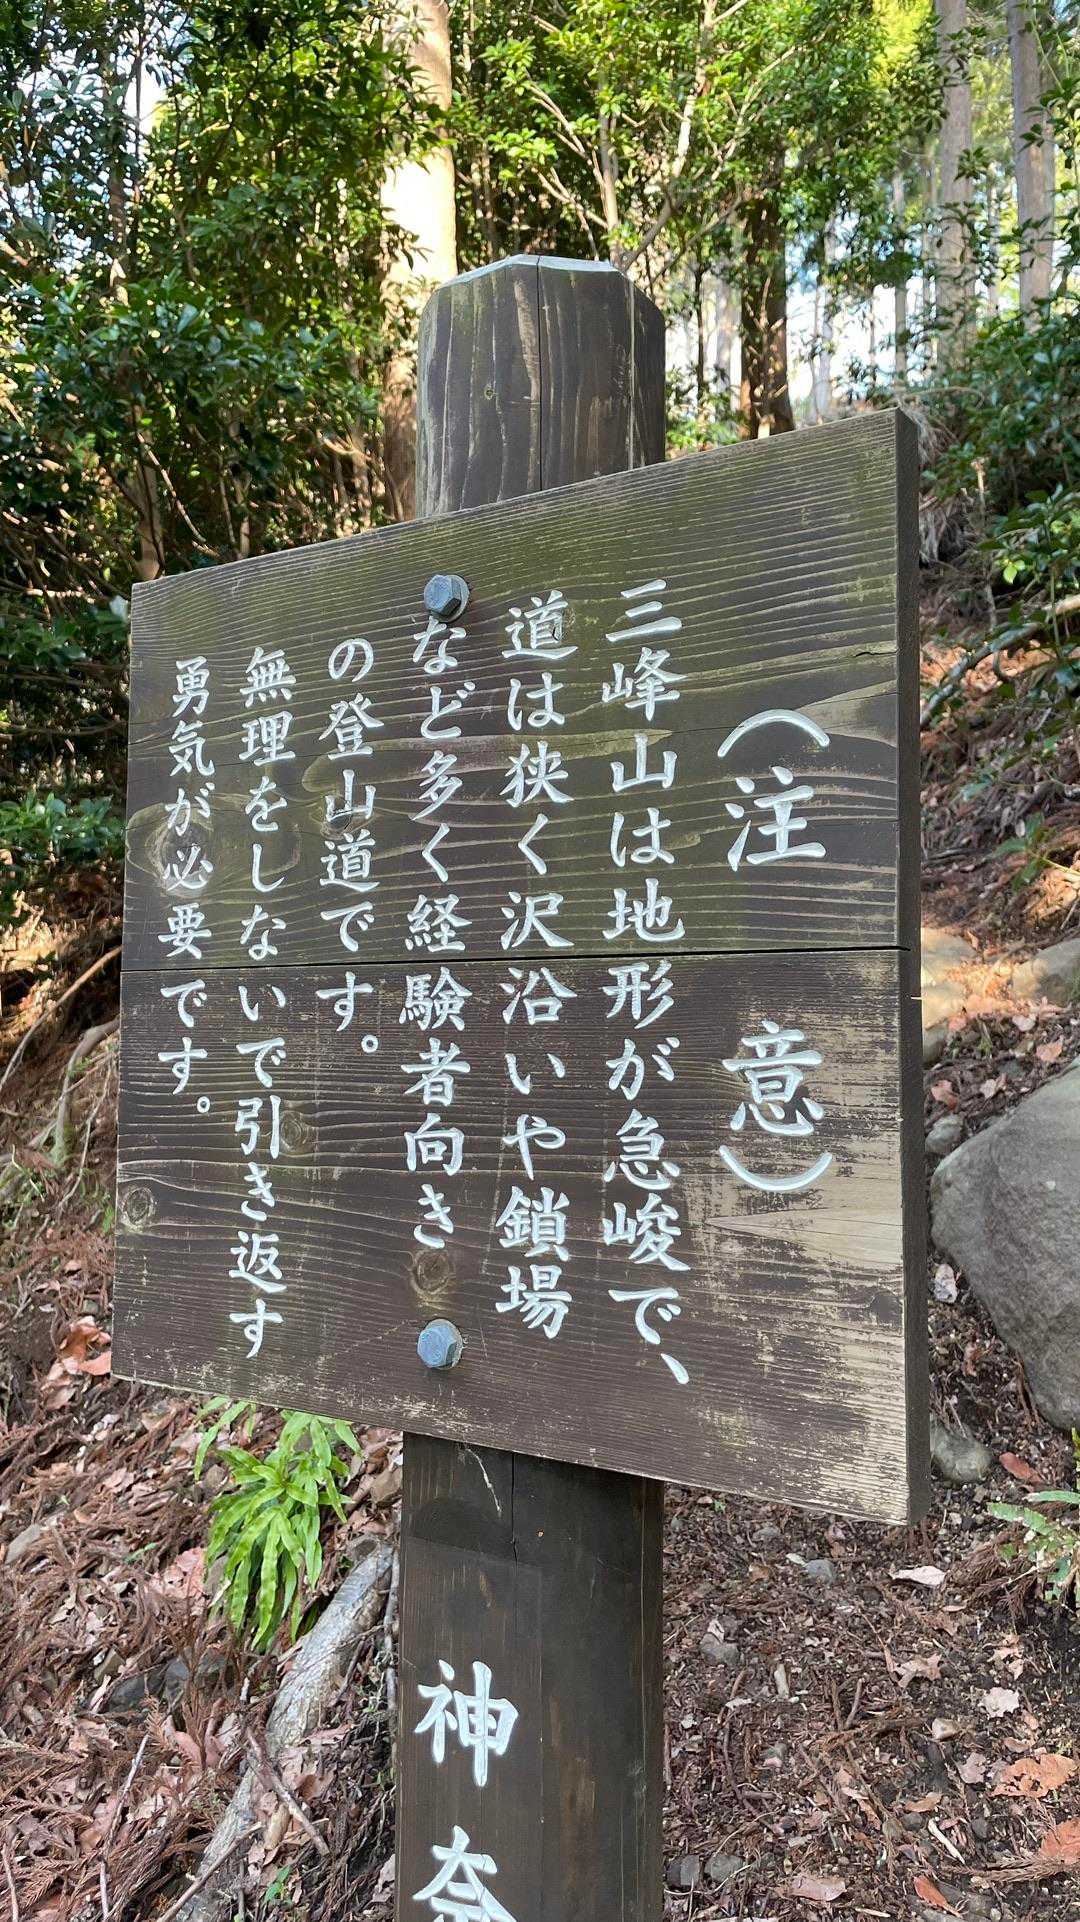 （注意）
三峰山は地形が急峻で、
道は狭く沢沿いや鎖場
など多く経験者向き
の登山道です。
無理をしないで引き返す
勇気が必要です。
神奈